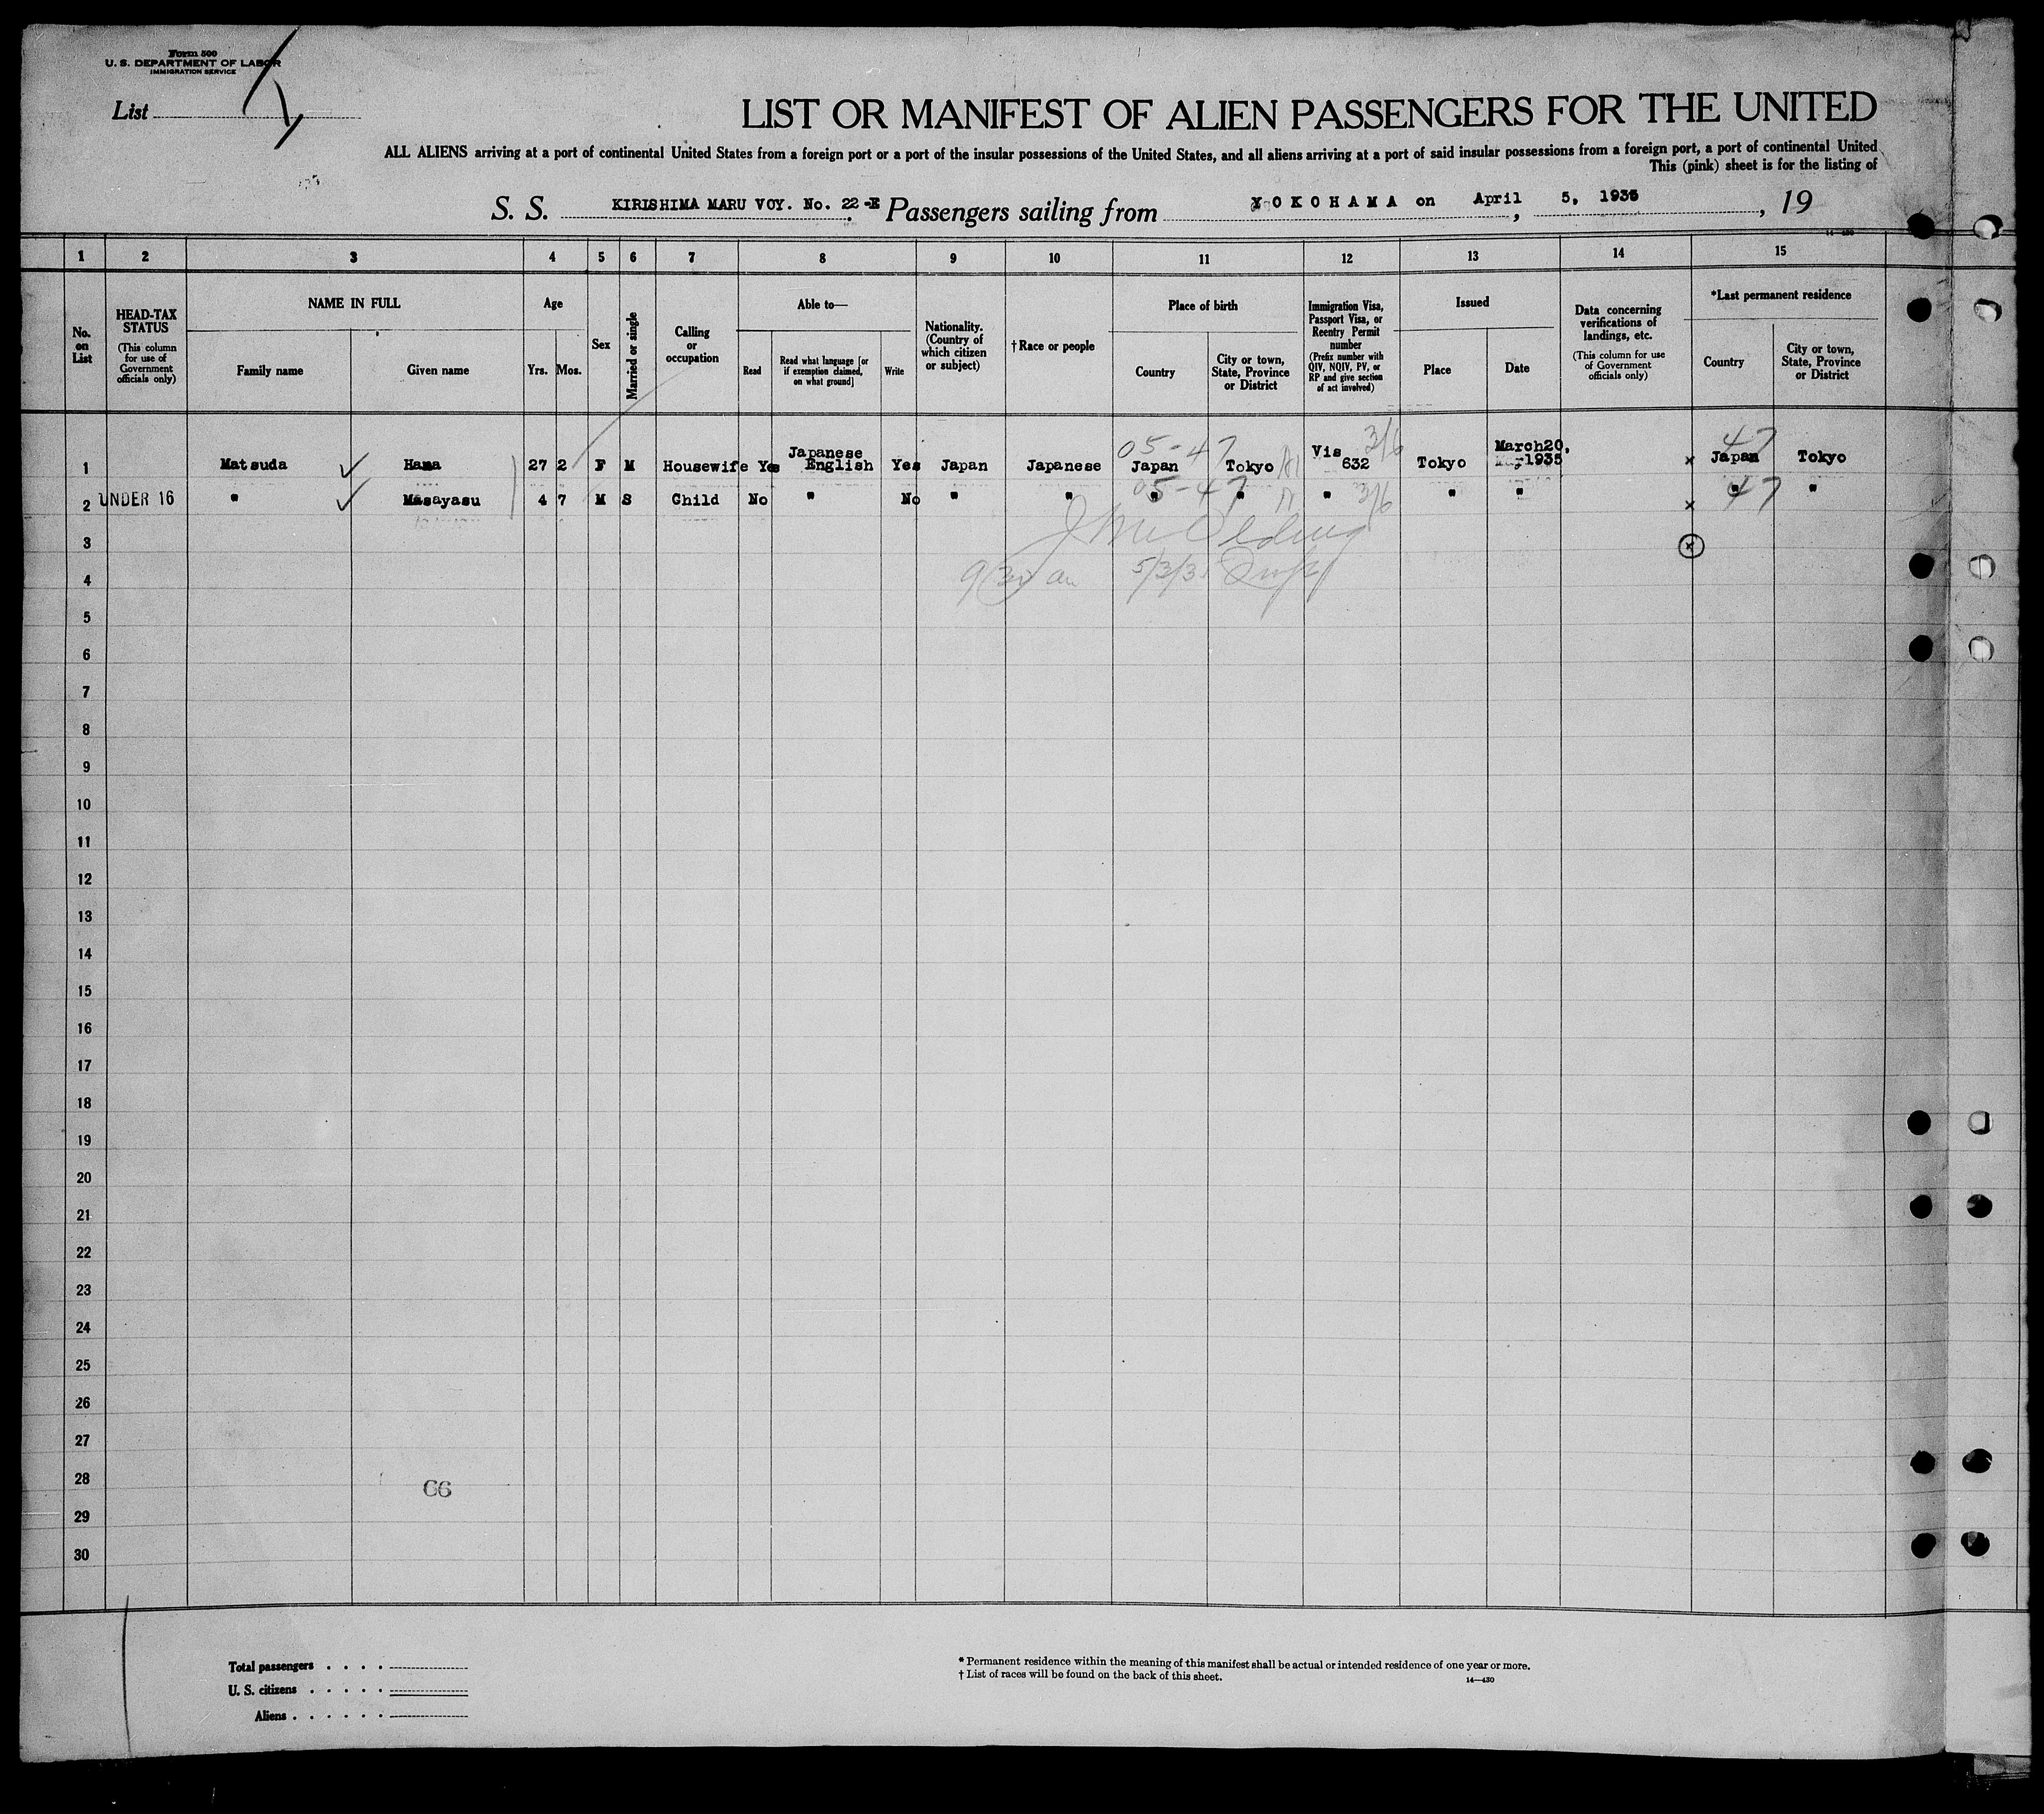 Form 500
U. S. DEPARTMENT OF LABOR
IMMIGRATION SERVICE
List
LIST OR MANIFEST OF ALIEN PASSENGERS FOR THE UNITED
ALL ALIENS arriving at a port of continental United States from a foreign port or a port of the insular possessions of the United States, and all aliens arriving at a port of said insular possessions from a foreign port, a port of continental United
This (pink) sheet is for the listing of
S. S. KIRISHIMA MARU VOY. No. 22-E Passengers sailing from YOKOHAMA on April 5, 1935, 19
1 2 3 4 5 6 7 8 9 10 11 12 13 14 15
No. on List
HEAD-TAX STATUS
(This column for use of Government officials only)
NAME IN FULL
Family name
Given name
Age
Yrs. Mos.
Sex
Married or single
Calling or occupation
Able to—
Read
Read what language [or if exemption claimed, on what ground]
Write
Nationality. (Country of which citizen or subject)
†Race or people
Place of birth
Country
City or town, State, Province or District
Immigration Visa, Passport Visa, or Reentry Permit number
(Prefix number with QIV, NQIV, PV, or RP and give section of act involved)
Issued
Place
Date
Data concerning verifications of landings, etc.
(This column for use of Government officials only)
*Last permanent residence
Country
City or town, State, Province or District
05-47 3/6 47
1 Matsuda Hama 27 2 F M Housewife Yes Japanese English Yes Japan Japanese Japan Tokyo Vis 632 Tokyo March20, -1935 x Japan Tokyo
05-47 3/6 47
2 UNDER 16 " Masayasu 4 7 M S Child No " No " " " " " " " x " "
3 x
4
5
6
7
8
9
10
11
12
13
14
15
16
17
18
19
20
21
22
23
24
25
26
27
28 66
29
30
Total passengers . . . .
U. S. citizens . . . . .
Aliens . . . . . .
* Permanent residence within the meaning of this manifest shall be actual or intended residence of one year or more.
† List of races will be found on the back of this sheet.
14—430